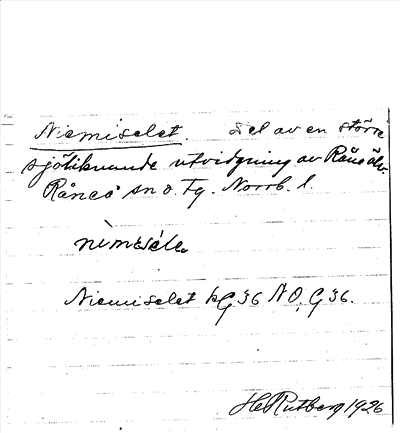 Niemiselet. Del av en större
sjöliknande utvidgning av Råneälv
Råneå sn o. tg. Norrb. l.
Niemiselet kG 36 NO, G 36.
H Rutberg 1926